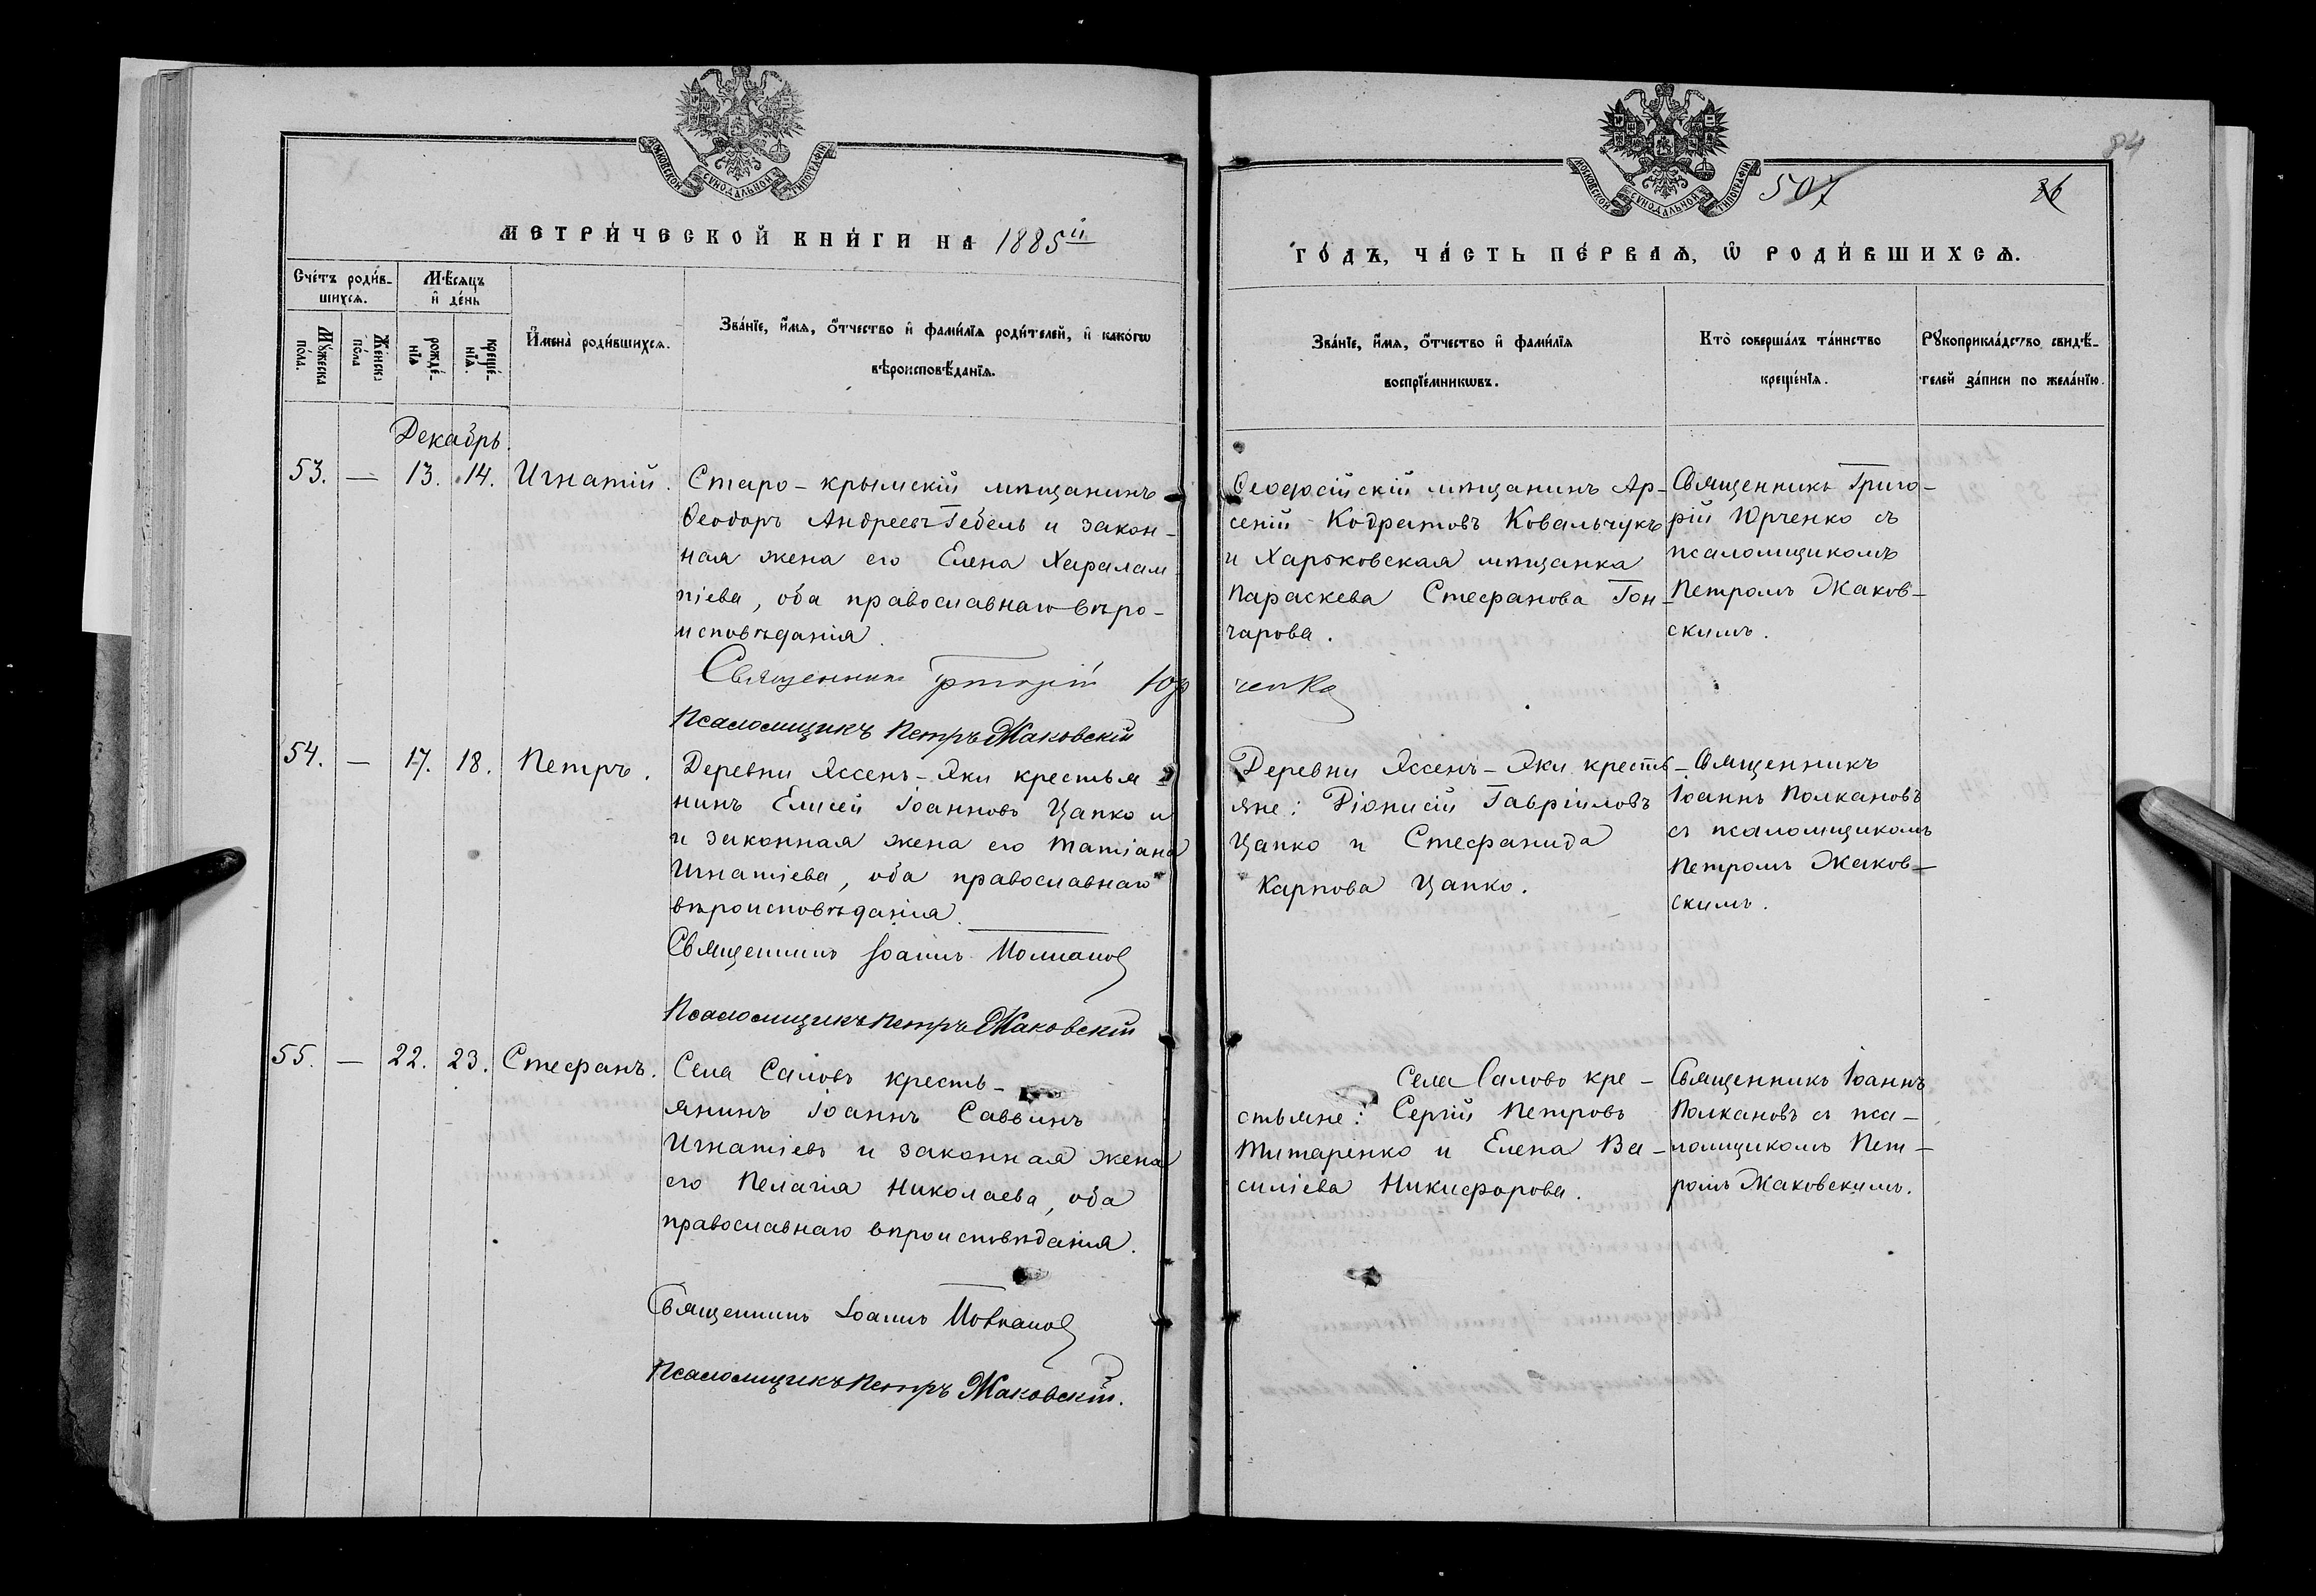 МОСКОВСКОЙ СѴНОДАЛЬНОЙ ТИПОГРАФІИ
МЕТРИ́ЧЕСКОЙ КНИ́ГИ НА 1885й
Сче́тъ роди́в-
шихсѧ.
Мѣ́сѧцъ
и҆ де́нь
Мꙋ́жеска
по́ла.
Же́нска
по́ла
рожде́-
нїѧ
креще́-
нїѧ.
И҆мена̀ роди́вшихсѧ.
Зва́нїе, и҆́мѧ, ѻ҆́тчество и҆ фами́лїѧ роди́телей, и҆ како́гѡ
вѣроисповѣ́данїѧ.
Декабрь.
53. — 13. 14. Игнатій.
Старо-крымскій мѣщанинъ
Ѳеодоръ Андреевъ Гебель и закон-
ная жена его Елена Харалам
піева, оба православнаго вѣро-
исповѣданія.
Священникъ Григорій Юр
Псаломщикъ Петръ Жаковскій
54. — 17. 18. Петръ.
Деревни Яссенъ-Яки крестья
нинъ Елисей Іоанновъ Цапко и
и законная жена его Татіана
Игнатіева, оба православнаго
вѣроисповѣданія.
Священникъ Іоаннъ Полкановъ
Псаломщикъ Петръ Жаковскій
55. — 22. 23. Стефанъ.
Села Саловъ кресть-
янинъ Іоаннъ Саввинъ
Игнатіевъ и законная жена
его Пелагія Николаева, оба
православнаго вѣроисповѣданія.
Священникъ Іоаннъ Полкановъ
Псаломщикъ Петръ Жаковскій.
84
МОСКОВСКОЙ СѴНОДАЛЬНОЙ ТИПОГРАФІИ
507
36
ГО́ДЪ, ЧА́СТЬ ПЕ́РВАѦ, Ѡ҆ РОДИ́ВШИХСѦ.
Зва́нїе, и҆́мѧ, ѻ҆́тчество и҆ фами́лїѧ
воспрїе́мникѡвъ.
Кто̀ соверша́лъ та́инство
креще́нїѧ.
Рꙋкоприкла́дство свидѣ́-
телей за́писи по жела́нїю.
Ѳеодосійскій мѣщанинъ Ар-
сеній Кодратовъ Ковальчукъ
и Харьковская мѣщанка
Параскева Стефанова Гон-
чарова.
Священникъ Григо-
рій Юрченко съ
псаломщикомъ
Петромъ Жаков-
скимъ.
ченко
Деревни Яссенъ-Яки кресть-
яне: Діонисій Гавріиловъ
Цапко и Стефанида
Карпова Цапко.
Священникъ
Іоаннъ Полкановъ
съ псаломщикомъ
Петромъ Жаков-
скимъ.
Села Салово кре-
стьяне: Сергій Петровъ
Титаренко и Елена Ва-
силіева Никифорова.
Священникъ Іоаннъ
Полкановъ съ пса-
ломщикомъ Пет-
ромъ Жаковскимъ.